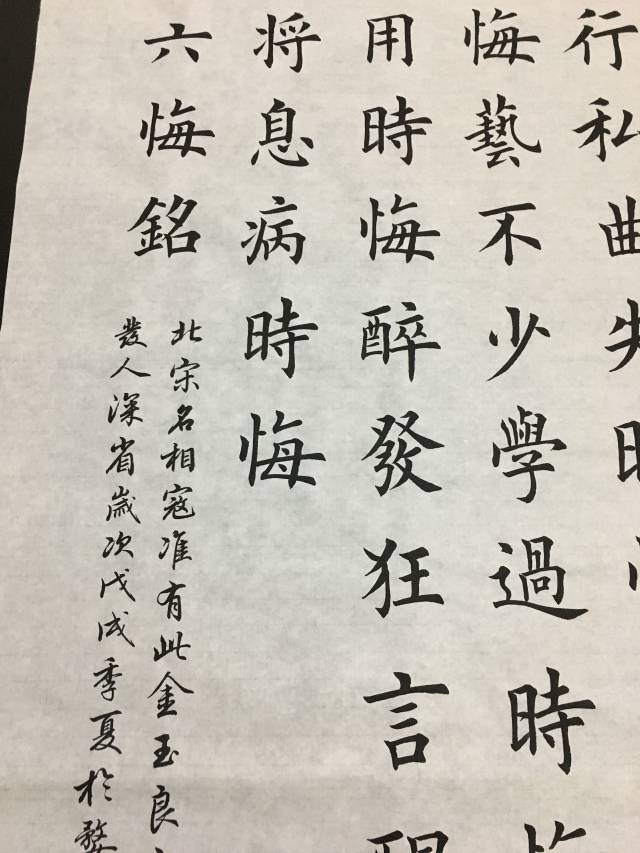 行私曲失
悔藝不少學過時
用時悔醉發狂言醒
将息病時悔
六悔銘
北宋名相寇准有此金玉良
發人深省歲次戊戌季夏於婺